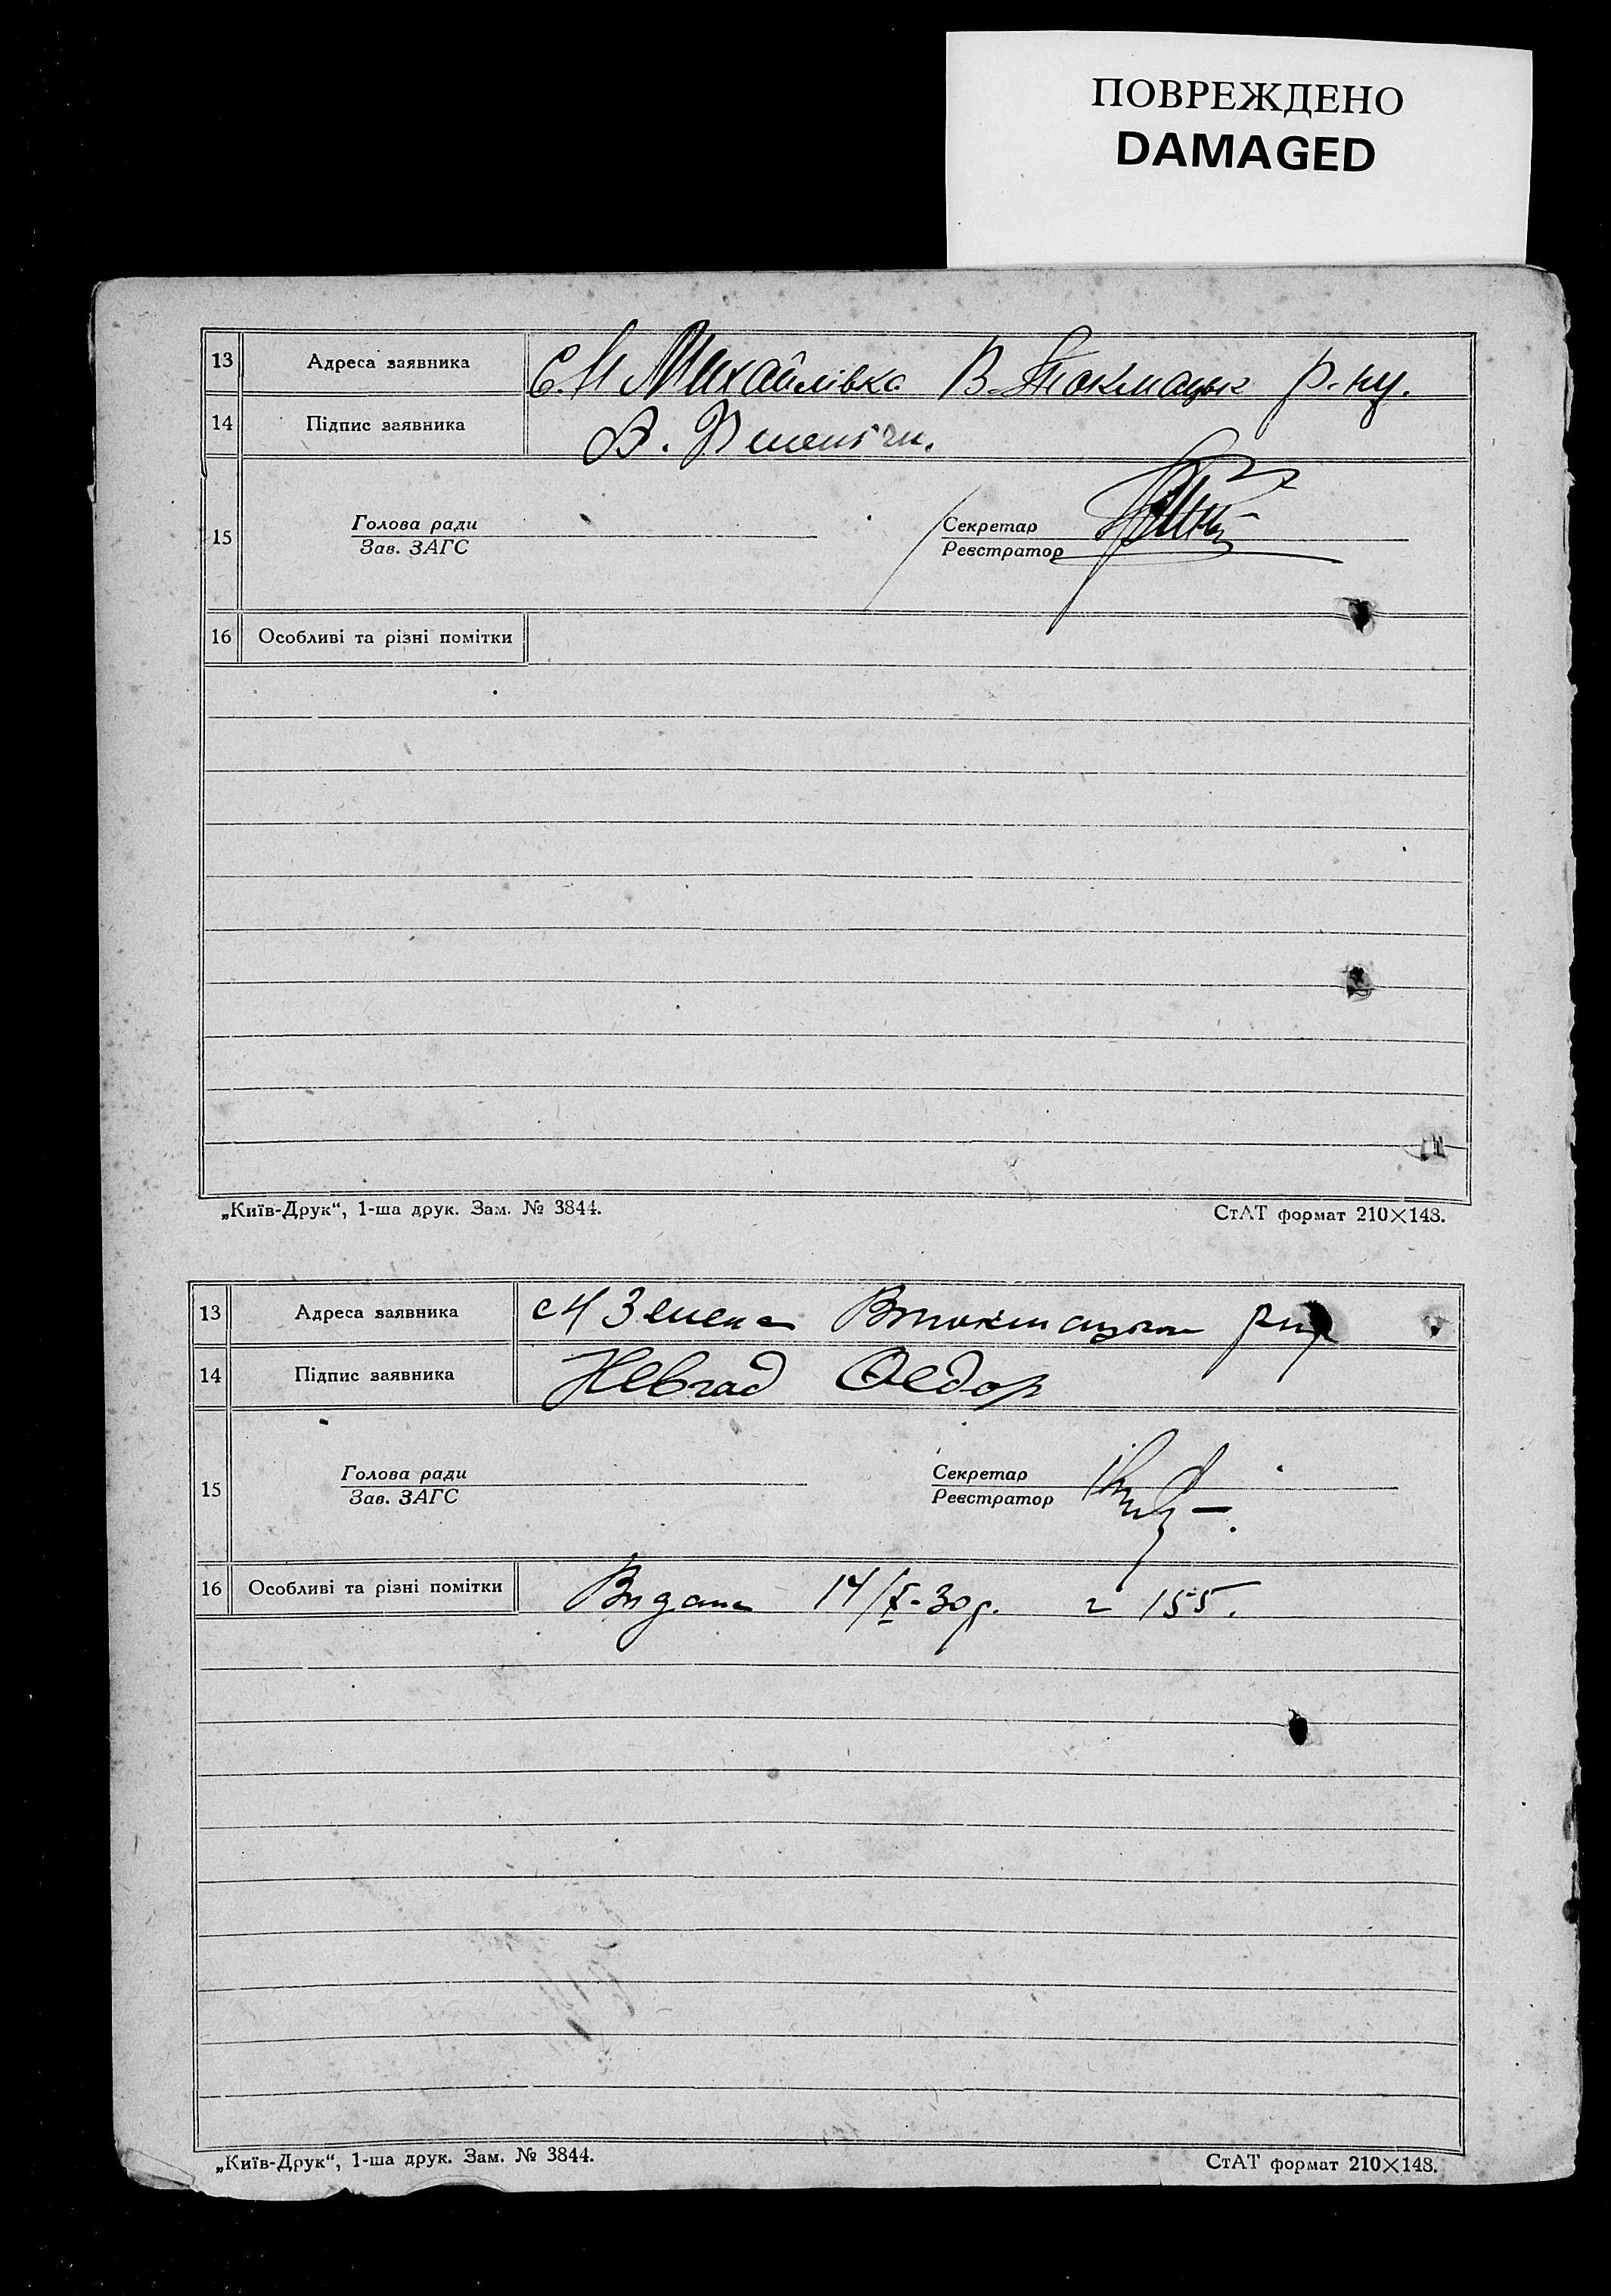 ПОВРЕЖДЕНО
DAMAGED
13 Адреса заявника С. М Михайлівка В. Токмацьк р-ну.
14 Підпис заявника В.
15 Голова ради
Зав. ЗАГС
Секретар
Реєстратор
16 Особливі та різні помітки
„Київ-Друк“, 1-ша друк. Зам. № 3844. СтАТ формат 210×148.
13 Адреса заявника с М
14 Підпис заявника Невгад Федор
15 Голова ради
Зав. ЗАГС
Секретар
Реєстратор
16 Особливі та різні помітки Видана 14/X-30р. 155.
„Київ-Друк“, 1-ша друк. Зам. № 3844. СтАТ формат 210×148.